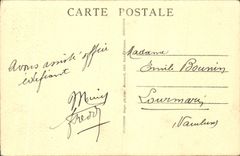 CARTE POSTALE
Avons assisté office
édifiant
Madame
Emile Bounin
Lourmarin
Vaucluse